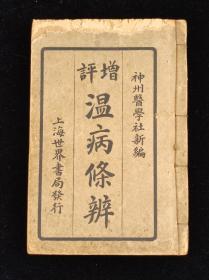 神州醫學社新編
評增
温病條辨
上海世界書局發行